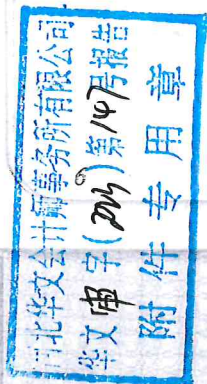 河北华文会计师事务所有限公司
华文审字(2023)第147号报告
附件专用章